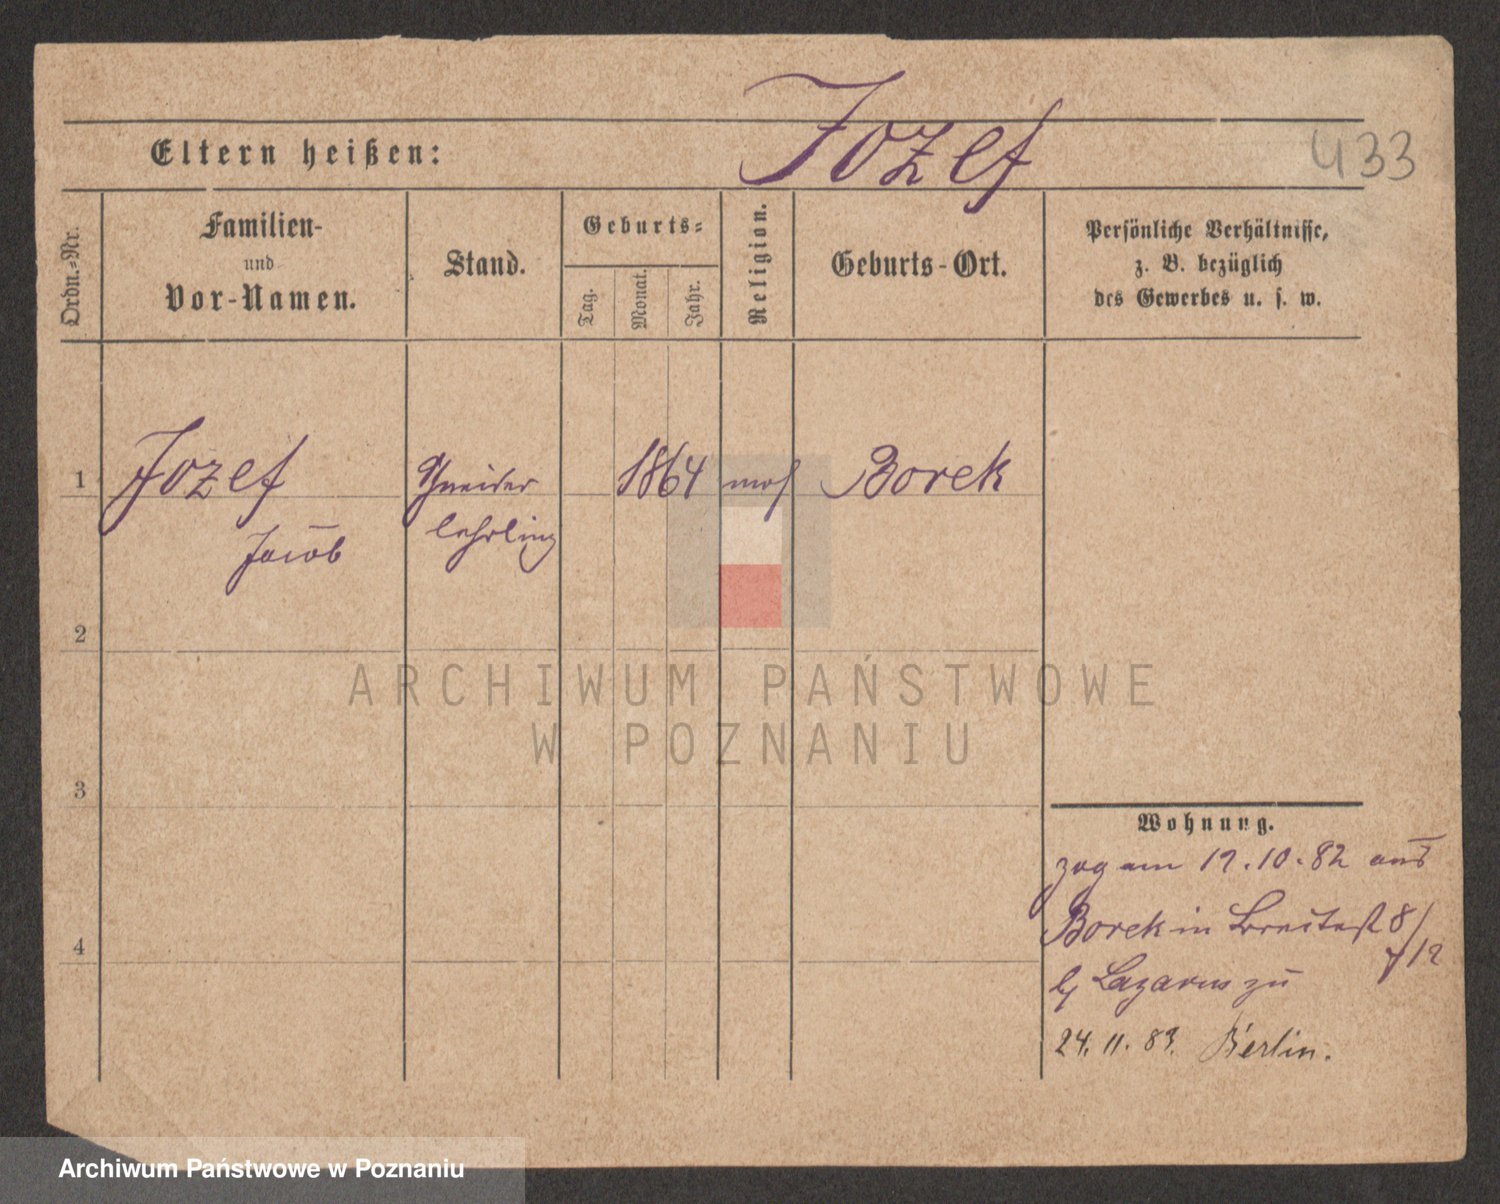 Jozef
433
Eltern heißen:
Ordn.-Nr.
Familien-
und
Vor-Namen.
Stand.
Geburts-
Tag.
Monat.
Jahr.
Religion.
Geburts-Ort.
Persönliche Verhältnisse,
z. B. bezüglich
des Gewerbes u. s. w.
1 Jozef Schneider 1864 mos Borek
Jacob lehrling
2
3
4
ARCHIWUM PAŃSTWOWE
W POZNANIU
Wohnung.
zog am 12.10.82 aus
Borek in Breitestr 8/
7/12
bj Lazarus zu
24.11.83. Berlin.
Archiwum Państwowe w Poznaniu